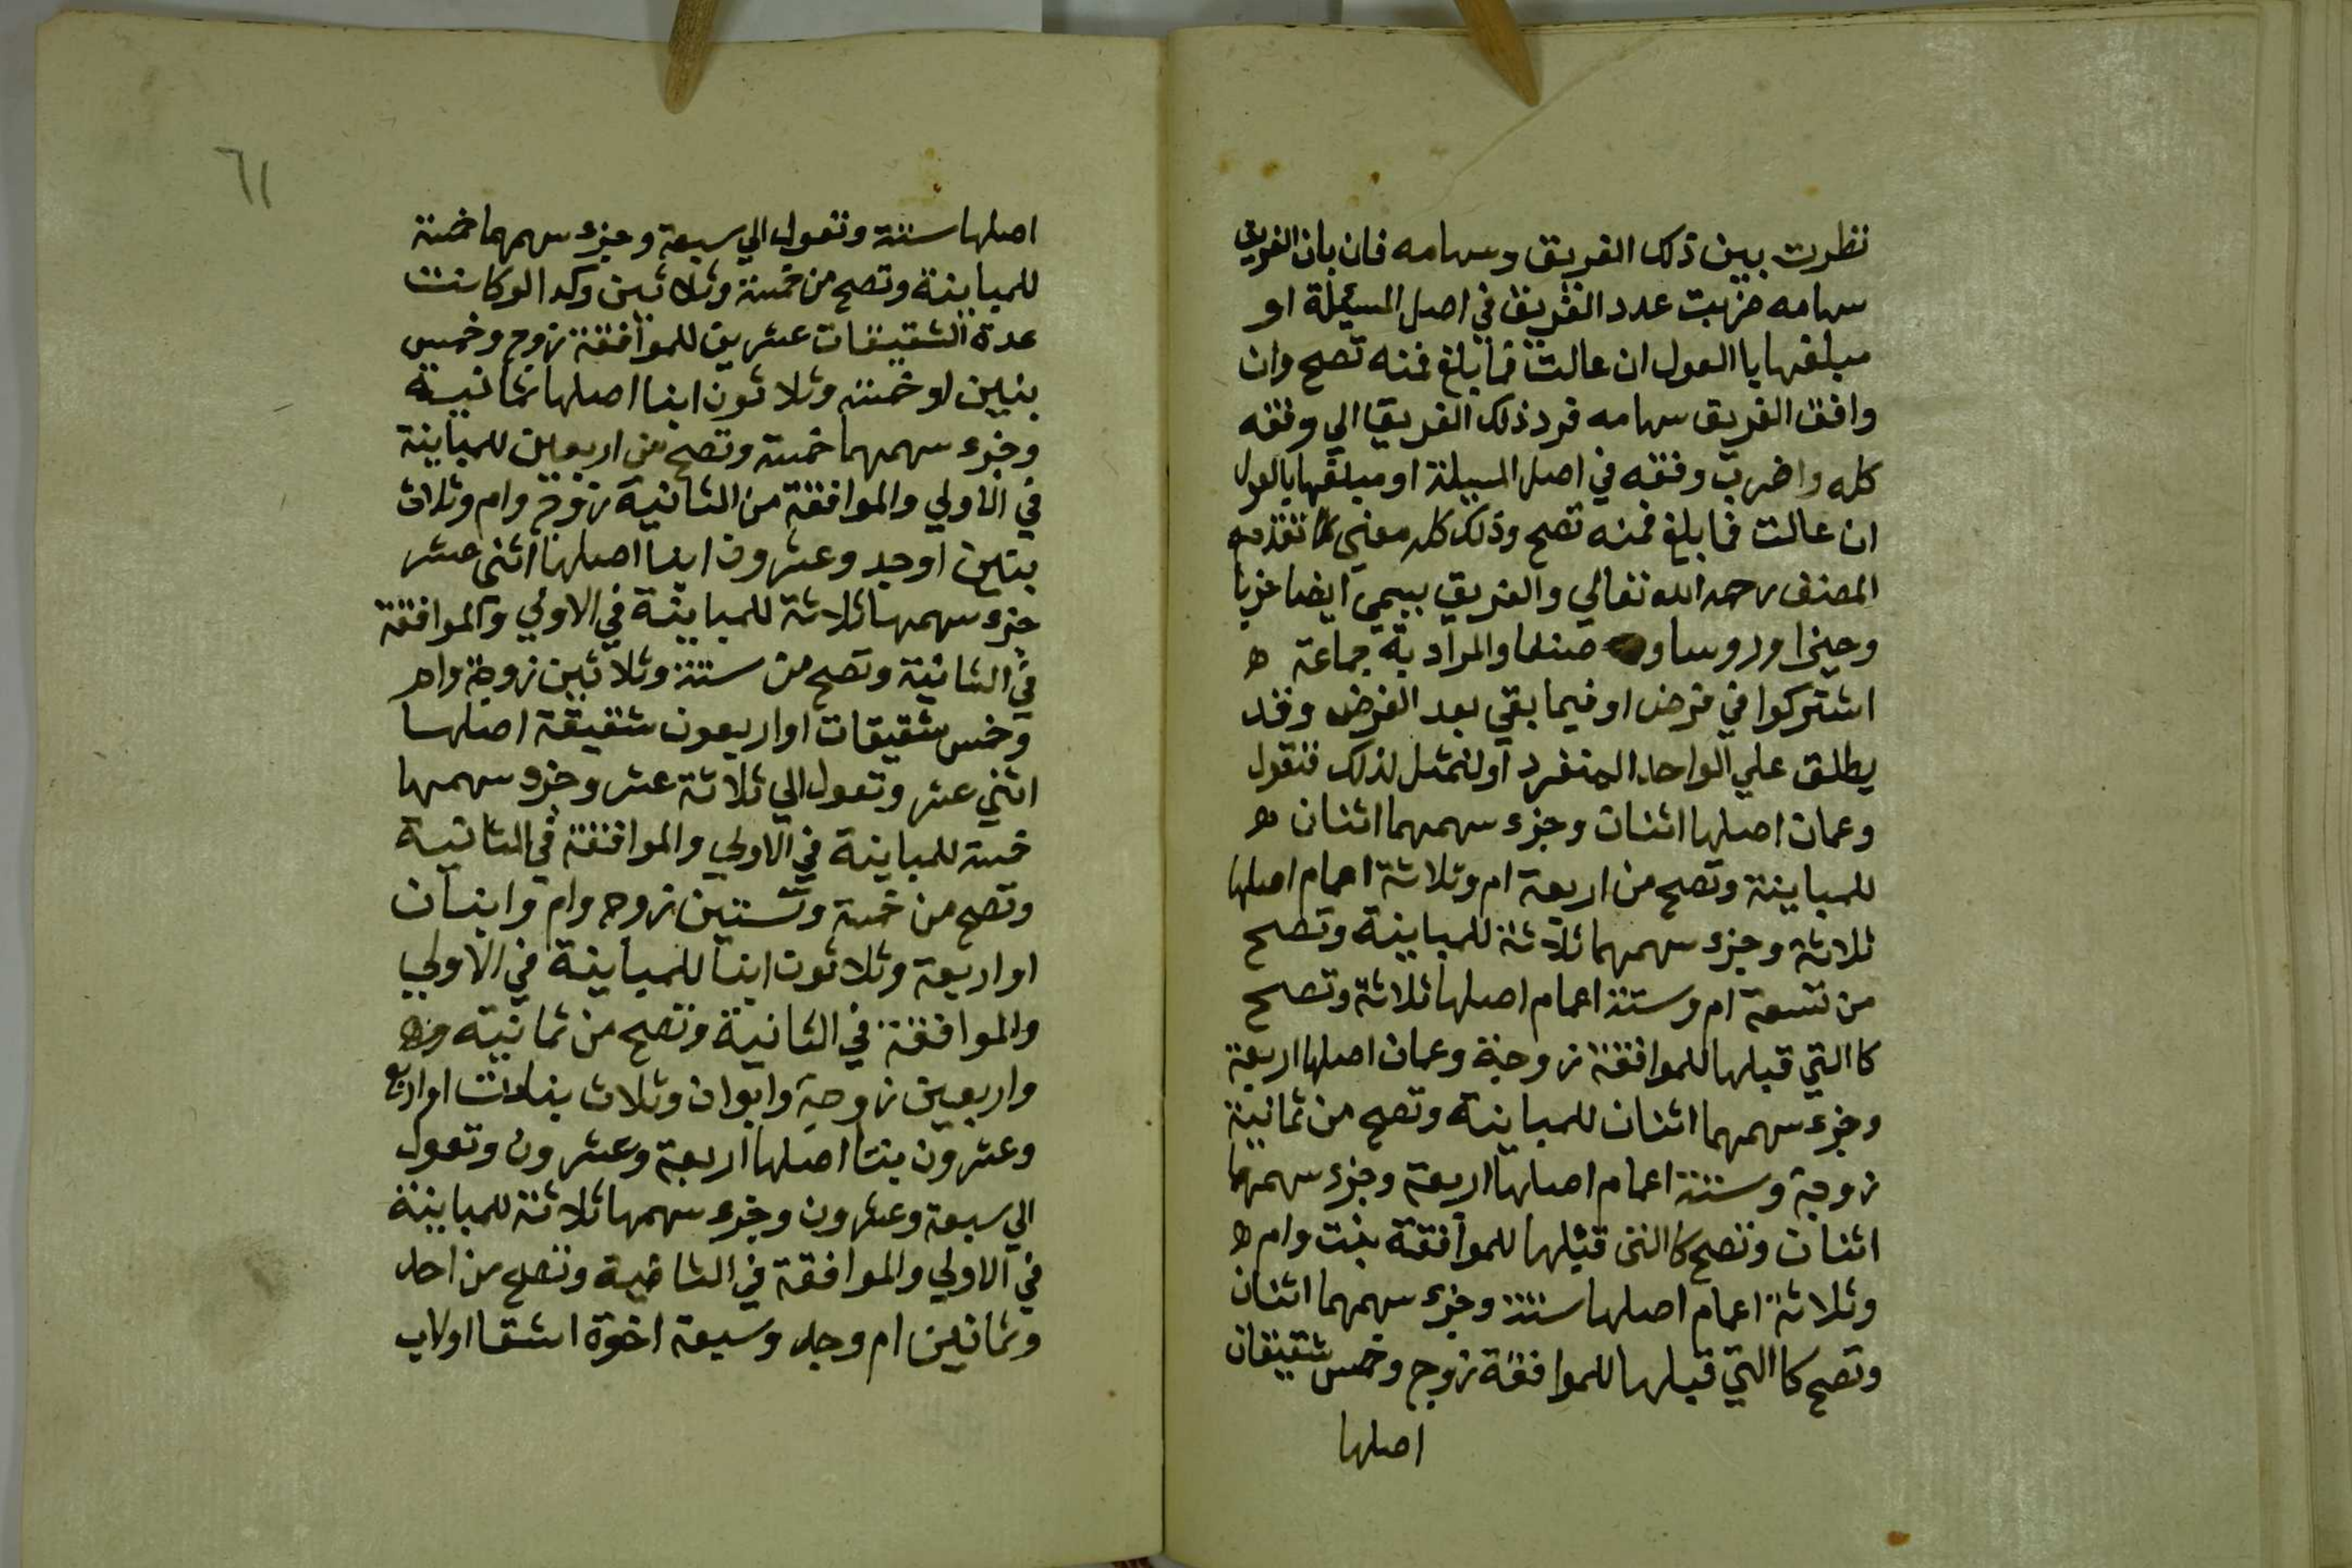 نظرت بين ذلك الفريق وسهامه فان باين الفريق
سهامه ضربت عدد الفريق في اصل المسيلة او
مبلغها با العول ان عالت فما بلغ فمنه تصح وان
وافق الفريق سهامه فرد ذلك الفريق الي وفقه
كله واضرب وفقه في اصل المسيلة او مبلغها بالعول
ان عالت فما بلغ فمنه تصح وذلك كله معني ما تقدمه
المصنف رحمه الله تعالي والفريق يسمي ايضا حزبا
وحيزا ورووسا و صنفا والمراد به جماعة ه
اشتركوا في فرض او فيما بقي بعد الفرض وقد
يطلق علي الواحد المنفرد اولنمثل لذلك فنقول
وعمان اصلها اثنان وجزء سهمهما اثنان ه
للمباينة وتصح من اربعة ام وثلاثة اعمام اصلها
ثلاثة وجزء سهمهما ثلاثة للمباينة وتصح
من تسعة ام وستة اعمام اصلها ثلاثة وتصح
كا التي قبلها للموافقة زوجة وعمان اصلها اربعة
وجزء سهمهما اثنان للمباينة وتصح من ثمانية
زوجة وستة اعمام اصلها اربعة وجزء سهمهما
اثنان وتصح كا التي قبلها للموافقة بنت وام ه
وثلاثة اعمام اصلها ستة وجزء سهمهما اثنان
وتصح كا التي قبلها للموافقة زوج وخمس شقيقات
اصلها
٦١
اصلها ستة وتعول الي سبعة وجزء سهمهما خمسة
للمباينة وتصح من خمسة وثلاثين وكدا لو كانت
عدة الشقيقات عشرين للموافقة زوج وخمس
بنين او خمسة وثلاثون ابنا اصلها ثمانية
وجزء سهمهما خمسة وتصح من اربعين للمباينة
في الاولي والموافقة من الثانية زوج وام وثلاث
بنين او حد وعشرون ابنا اصلها اثني عشر
جزء سهمها ثلاثة للمباينة في الاولي والموافقة
في الثانية وتصح من ستة وثلاثين زوجة وام
وخمس شقيقات او اربعون شقيقة اصلها
اثني عشر وتعول الي ثلاثة عشر وجزء سهمها
خمسة للمباينة في الاولي والموافقة في الثانية
وتصح من خمسة وستين زوج وام وابنان
او اربعة وثلاثون ابنا للمباينة في الاولي
والموافقة في الثانية وتصح من ثمانية
واربعين زوجة وابوان وثلاث بنات او اربع
وعشرون بنتا اصلها اربعة وعشرون وتعول
الي سبعة وعشرون وجزء سهمها ثلاثة للمباينة
في الاولي والموافقة في الثانية وتصح من احد
وثمانين ام وجد وسبعة اخوة اشقا اولاب